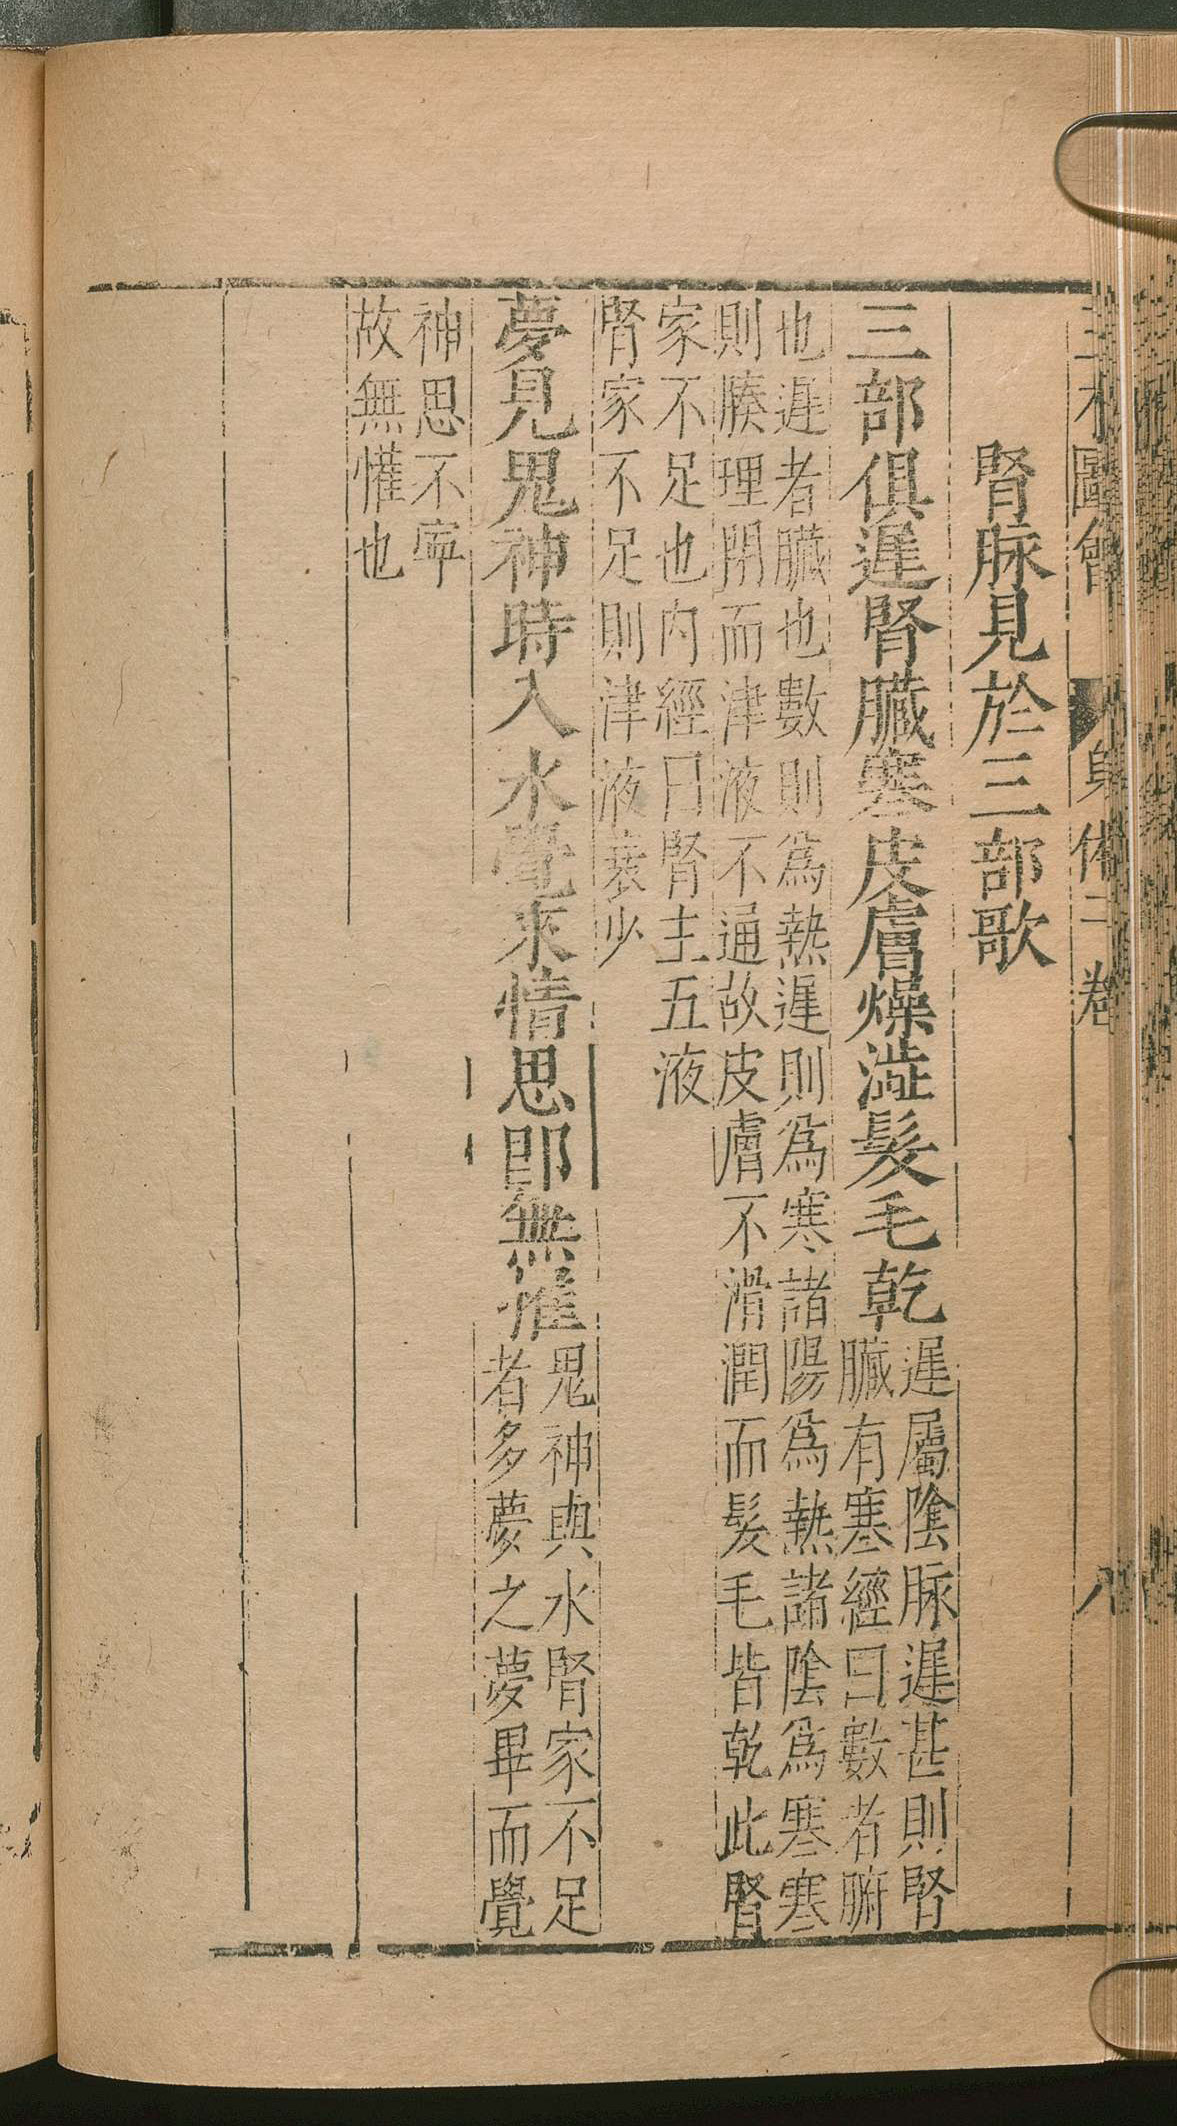 三才圖會 身體二卷 八
腎脉見於三部歌
三部俱遲腎臓寒皮膚燥澁髮毛乾
遲屬隂脉遲甚則腎
臓有寒經曰數者腑
也遲者臓也數則爲熱遲則爲寒諸陽爲熱諸隂爲寒寒
則腠理閉而津液不通故皮膚不滑潤而髮毛皆乾此腎
家不足也內經曰腎主五液
腎家不足則津液衰少
夢見鬼神時入水覺來情思即無懽
鬼神與水腎家不足
者多夢之夢畢而覺
神思不寕
故無懽也